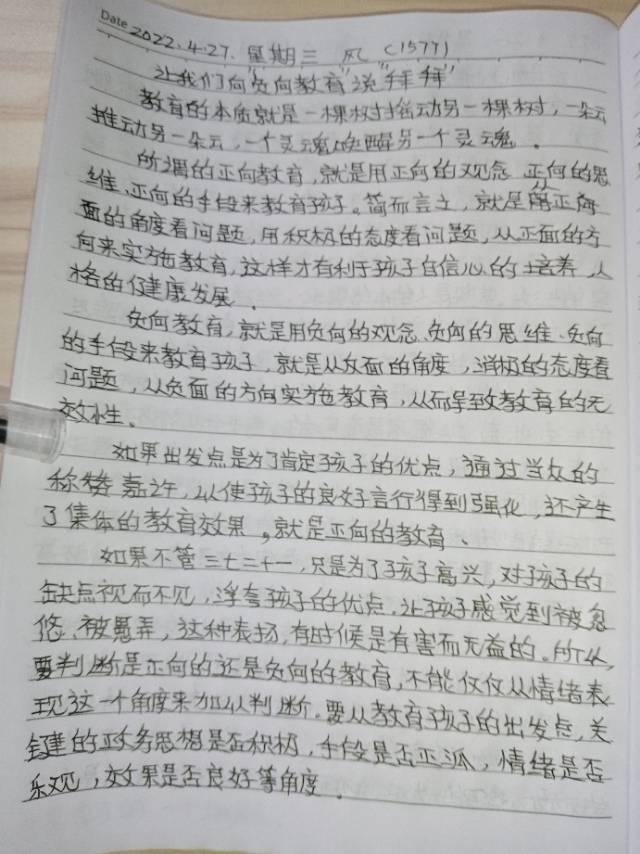 Date 2022.4.27. 星期三 风 (1577)
让我们向"负向教育"说"拜拜"
教育的本质就是一棵树摇动另一棵树，一朵云
推动另一朵云，一个灵魂唤醒另一个灵魂。
所谓的正向教育，就是用正向的观念、正向的思
维、正向的手段来教育孩子。简而言之，就是从正
面的角度看问题，用积极的态度看问题，从正面的方
向来实施教育，这样才有利于孩子自信心的培养，人
格的健康发展。
负向教育，就是用负向的观念、负向的思维、负向
的手段来教育孩子，就是从负面的角度，消极的态度看
问题，从负面的方向实施教育，从而导致教育的无
效性。
如果出发点是为了肯定孩子的优点，通过当众的
称赞嘉许，以使孩子的良好言行得到强化，还产生
了集体的教育效果。就是正向的教育。
如果不管三七二十一，只是为了孩子高兴，对孩子的
缺点视而不见，浮夸孩子的优点，让孩子感觉到被忽
悠、被愚弄，这种表扬，有时候是有害而无益的。所以，
要判断是正向的还是负向的教育，不能仅仅从情绪表
现这一个角度来加以判断。要从教育孩子的出发点，关
键的政务思想是否积极，手段是否正派，情绪是否
乐观，效果是否良好等角度。